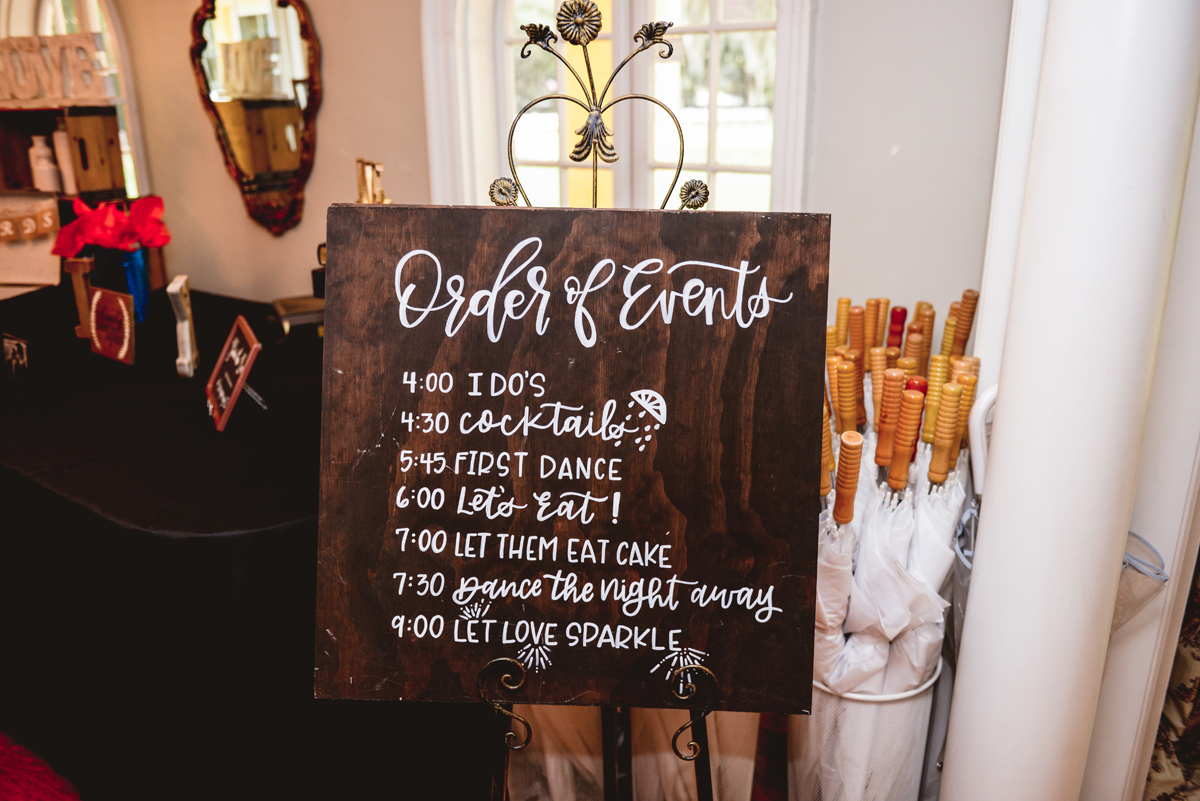 Order of Events
4:00 I DO'S
4:30 cocktails
5:45 FIRST DANCE
6:00 Let's Eat!
7:00 LET THEM EAT CAKE
7:30 Dance the night away
9:00 LET LOVE SPARKLE